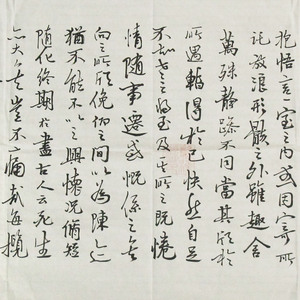 抱悟言一室之内或因寄所
託放浪形骸之外雖趣舍
萬殊静躁不同當其欣於
所遇暫得於己快然自足
不知老之将至及其所之既惓
情随事遷感慨係之矣
向之所欣俛仰之間以為陳迹
猶不能不以之興懷況脩短
随化終期於盡古人云死生
亦大矣豈不痛哉每攬